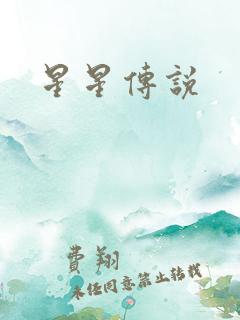 星星傳說
費翔
未經同意禁止轉載